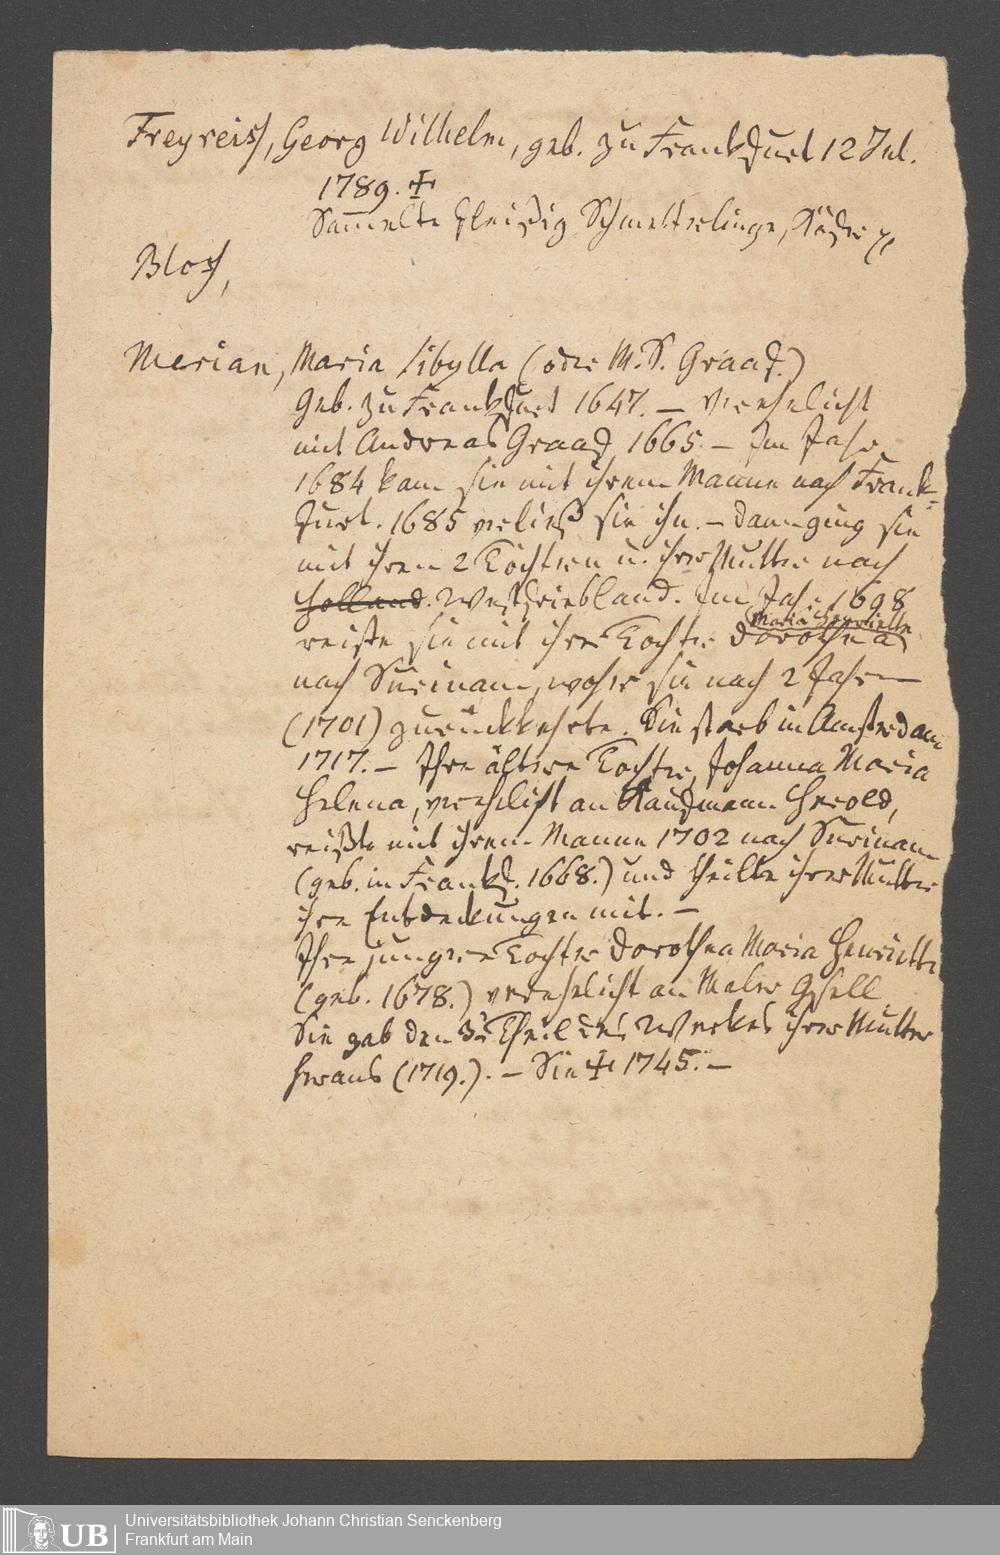 Freyreiss, Georg Wilhelm, geb. zu Frankfurt 12 Jul.
1789. ✠
Sammelte fleißig Schmetterlinge, Käfer
Bloss,
Merian, Maria Sibylla (oder M. S. Graaf.)
Geb. zu Frankfurt 1647. — Verehelicht
mit Andreas Graaf, 1665. — Im Jahr
1684 kam sie mit ihrem Manne nach Frank-
furt. 1685 verließ sie ihn. — Dann ging sie
mit ihren 2 Töchtern u. ihrer Mutter nach
Holland. Westfriesland. Im Jahr 1698
reiste sie mit ihrer Tochter Dorothea Maria Henriette
nach Surinam, woher sie nach 2 Jahren
(1701) zurückkehrte. Sie starb in Amsterdam
1717. — Ihre ältere Tochter, Johanna Maria
Helena, verehelicht an Kaufmann Herold,
reißte mit ihrem Manne 1702 nach Surinam
(geb. in Frankf. 1668.) und theilte ihrer Mutter
ihre Entdeckungen mit. —
Ihre jüngere Tochter Dorothea Maria Henriette
(geb. 1678.) verehelicht an Maler Gsell
Sie gab den 3n Theil des Werkes ihrer Mutter
heraus (1719.). — Sie ✠ 1745. —
UB
Universitätsbibliothek Johann Christian Senckenberg
Frankfurt am Main